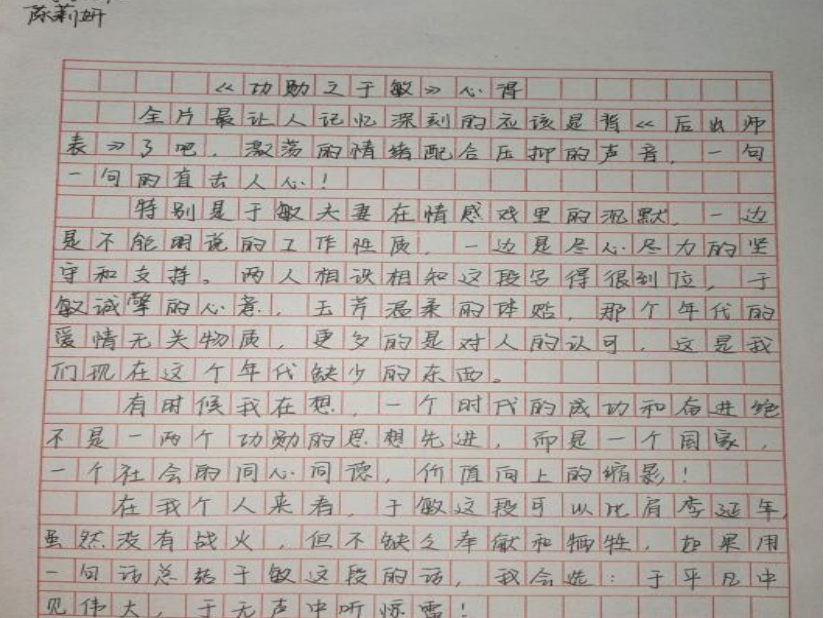 陈莉妍
《功勋之于敏》心得
全片最让人记忆深刻的应该是背《后出师
表》了吧，激荡的情绪配合压抑的声音，一句
一句的直击人心！
特别是于敏夫妻在情感戏里的沉默，一边
是不能明说的工作性质，一边是尽心尽力的坚
守和支持。两人相识相知这段写得很到位，于
敏诚挚的心意，玉芹温柔的体贴，那个年代的
爱情无关物质，更多的是对人的认可，这是我
们现在这个年代缺少的东西。
有时候我在想，一个时代的成功和奋进绝
不是一两个功勋的思想先进，而是一个国家，
一个社会的同心同德，价值向上的缩影！
在我个人来看，于敏这段可以比肩李延年，
虽然没有战火，但不缺乏奉献和牺牲，如果用
一句话总结于敏这段的话，我会选：于平凡中
见伟大，于无声中听惊雷！